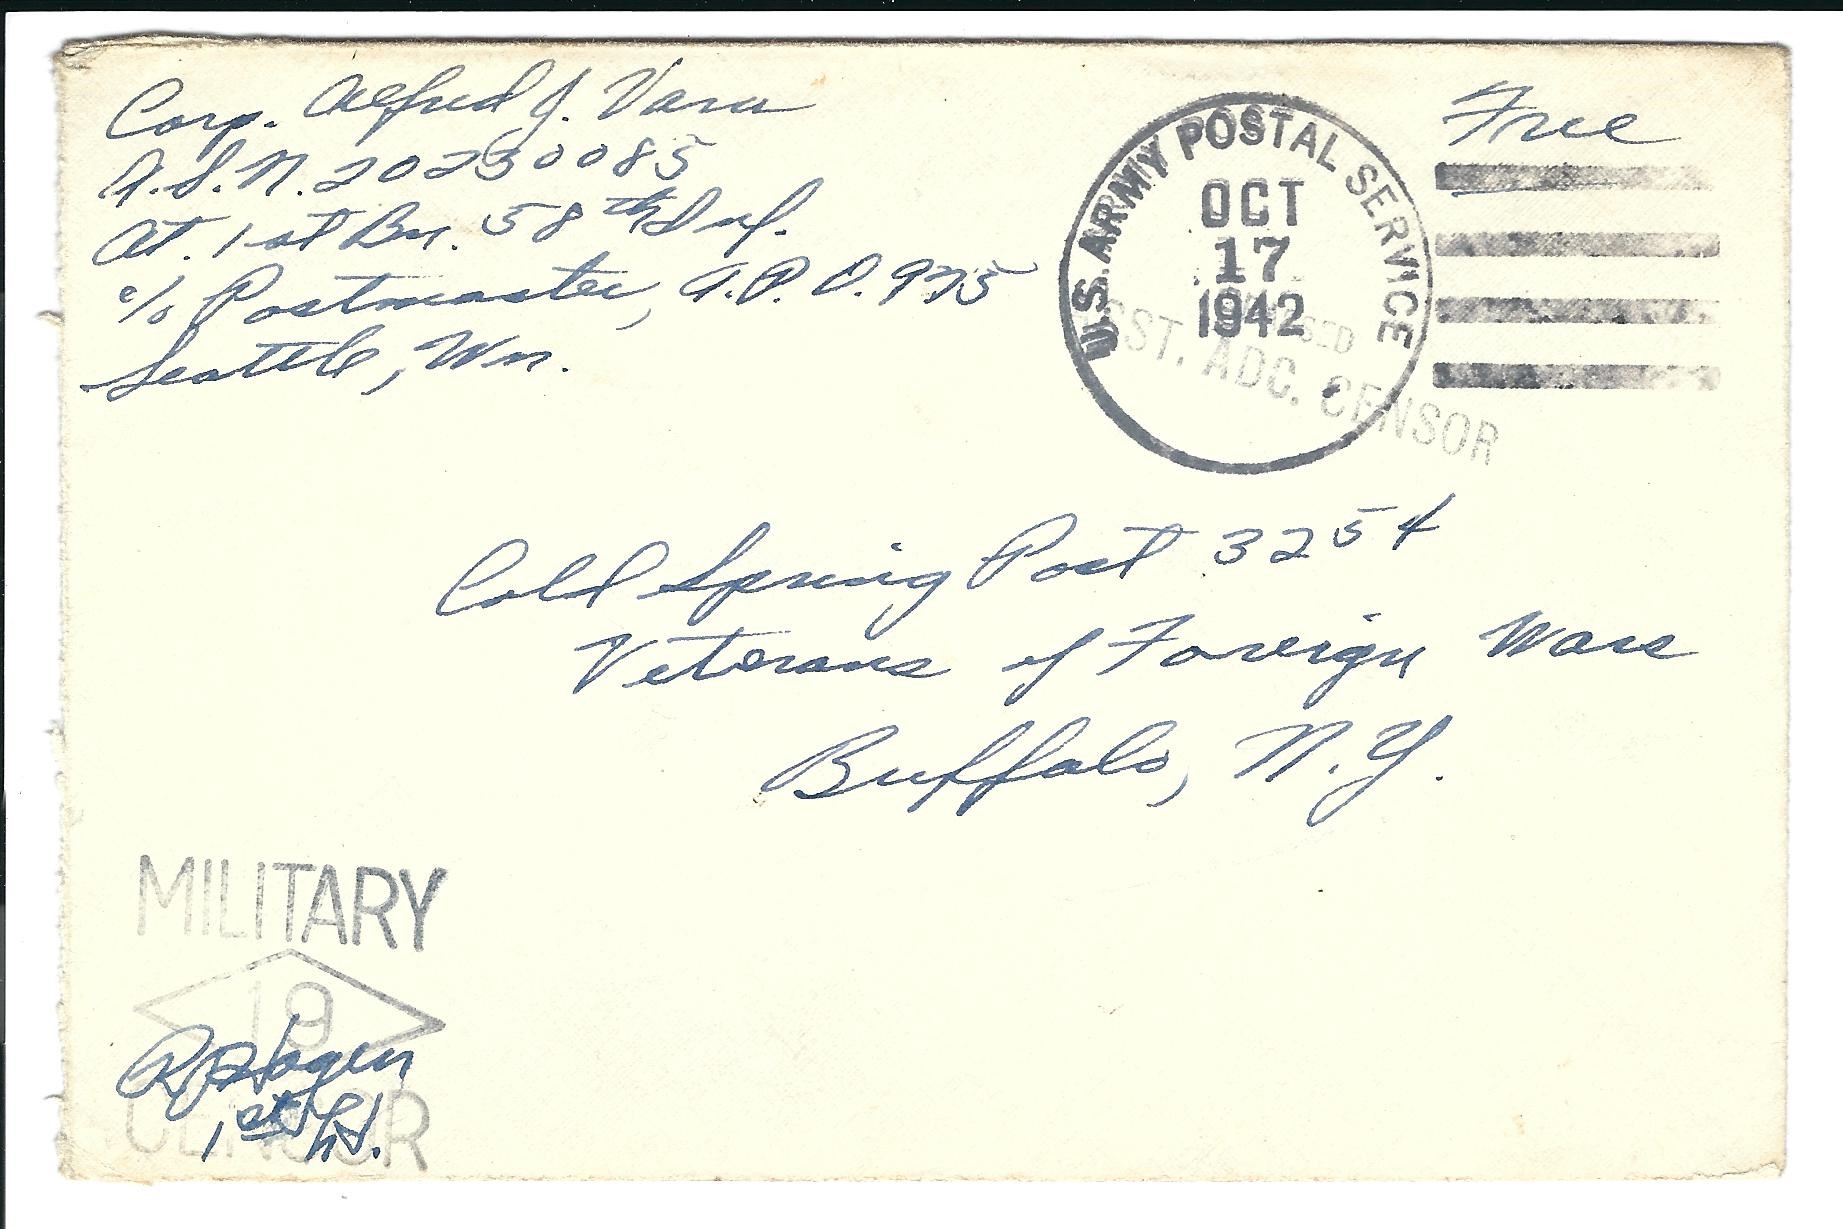 Corp. Alfred J. Vara
A.S.N. 20230085
At. 1st Bn. 58th Inf.
c/o Postmaster, A.P.O. 975
Seattle, Wn.
Free
U.S. ARMY POSTAL SERVICE
OCT
17
1942
ADC. CENSOR
Cold Spring Post 3254
Veterans of Foreign Wars
Buffalo, N.Y.
MILITARY
19
CENSOR
1st Lt.